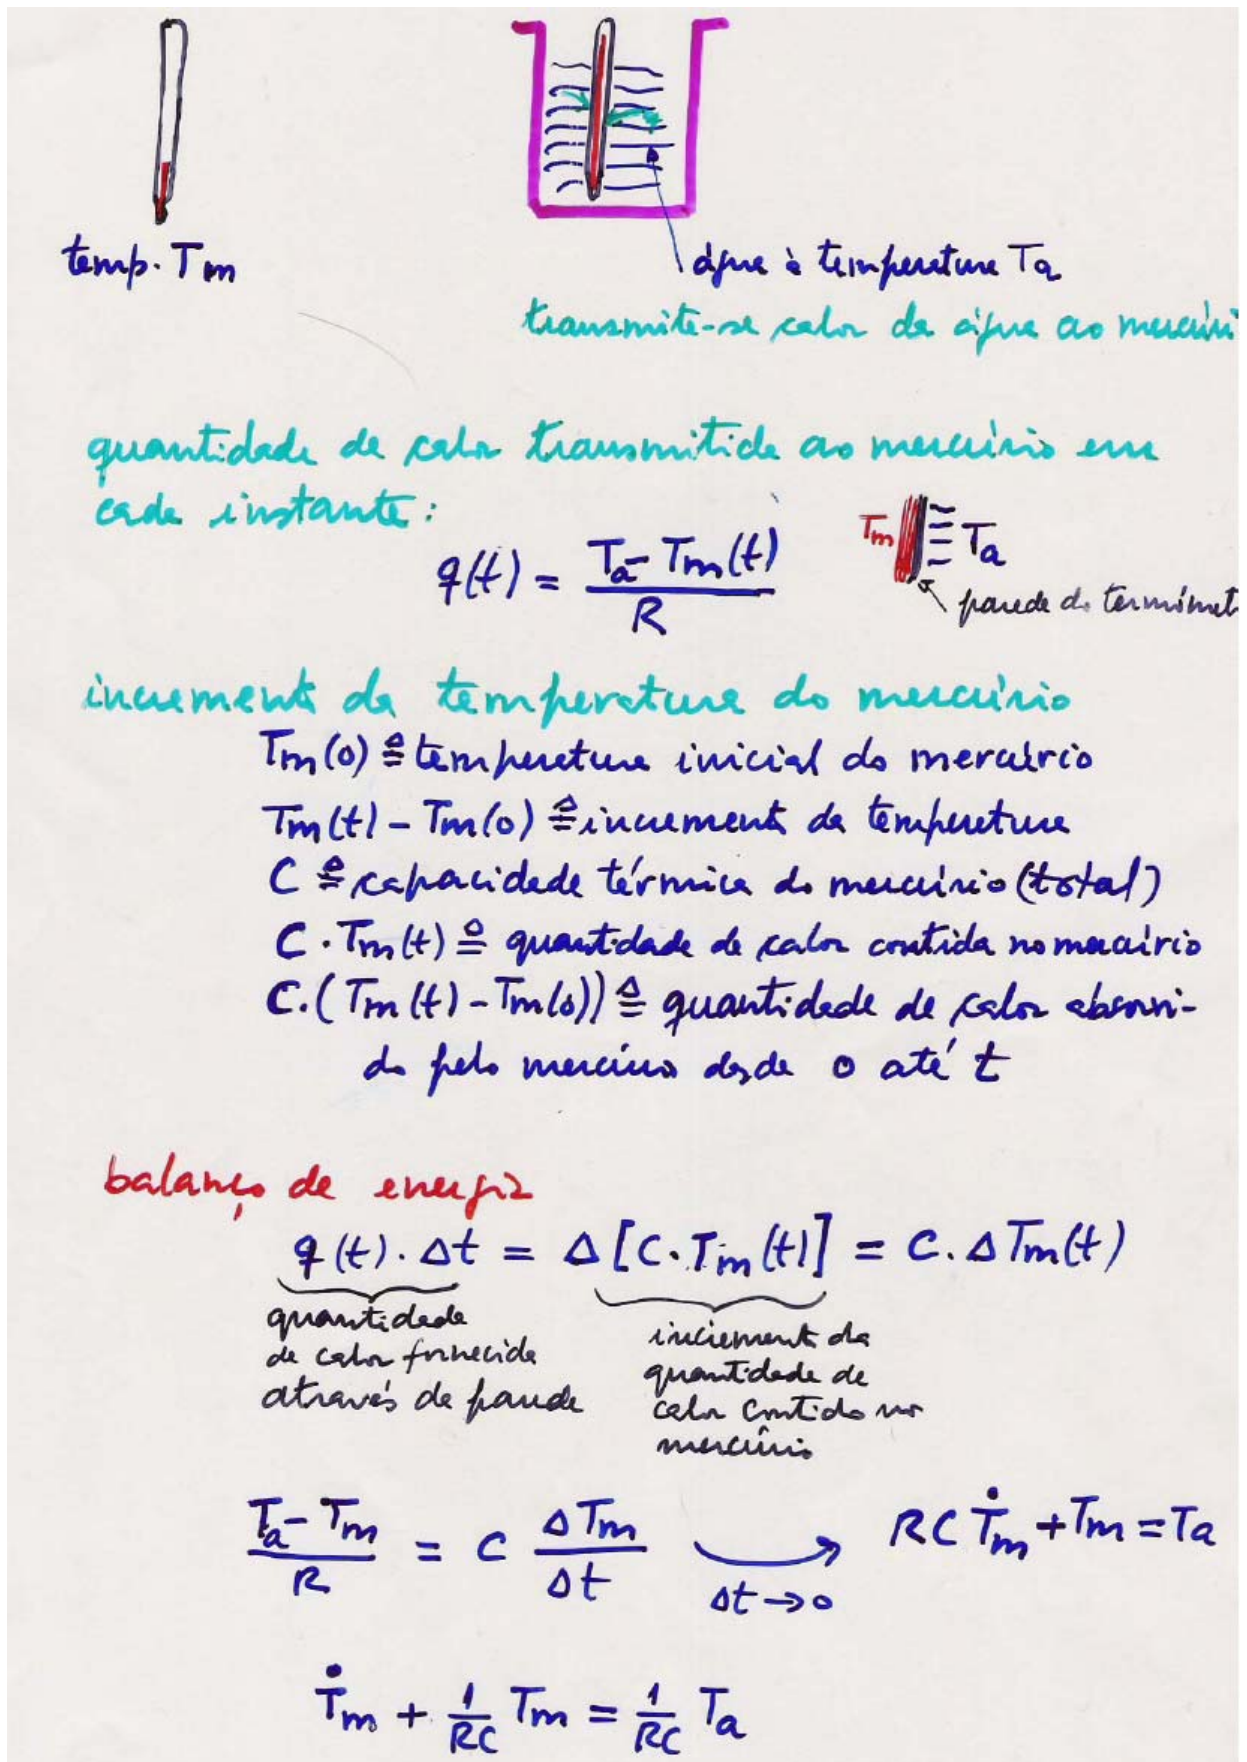 temp. Tm
água à temperatura Ta
transmite-se calor da água ao mercúri
quantidade de calor transmitida ao mercúrio em
cada instante:
q(t) = (Ta - Tm(t)) / R
Tm Ta
parede do termómet
incremento da temperatura do mercúrio
Tm(0) ≜ temperatura inicial do mercúrio
Tm(t) - Tm(0) ≜ incremento da temperatura
C ≜ capacidade térmica do mercúrio (total)
C · Tm(t) ≜ quantidade de calor contida no mercúrio
C.(Tm(t) - Tm(0)) ≜ quantidade de calor absorvi-
do pelo mercúrio desde 0 até t
balanço de energia
q(t) · Δt = Δ[C · Tm(t)] = C. ΔTm(t)
quantidade
de calor fornecida
através da parede
incremento da
quantidade de
calor contido no
mercúrio
(Ta - Tm) / R = C ΔTm / Δt → RC Ṫm + Tm = Ta
Δt → 0
Ṫm + 1/RC Tm = 1/RC Ta